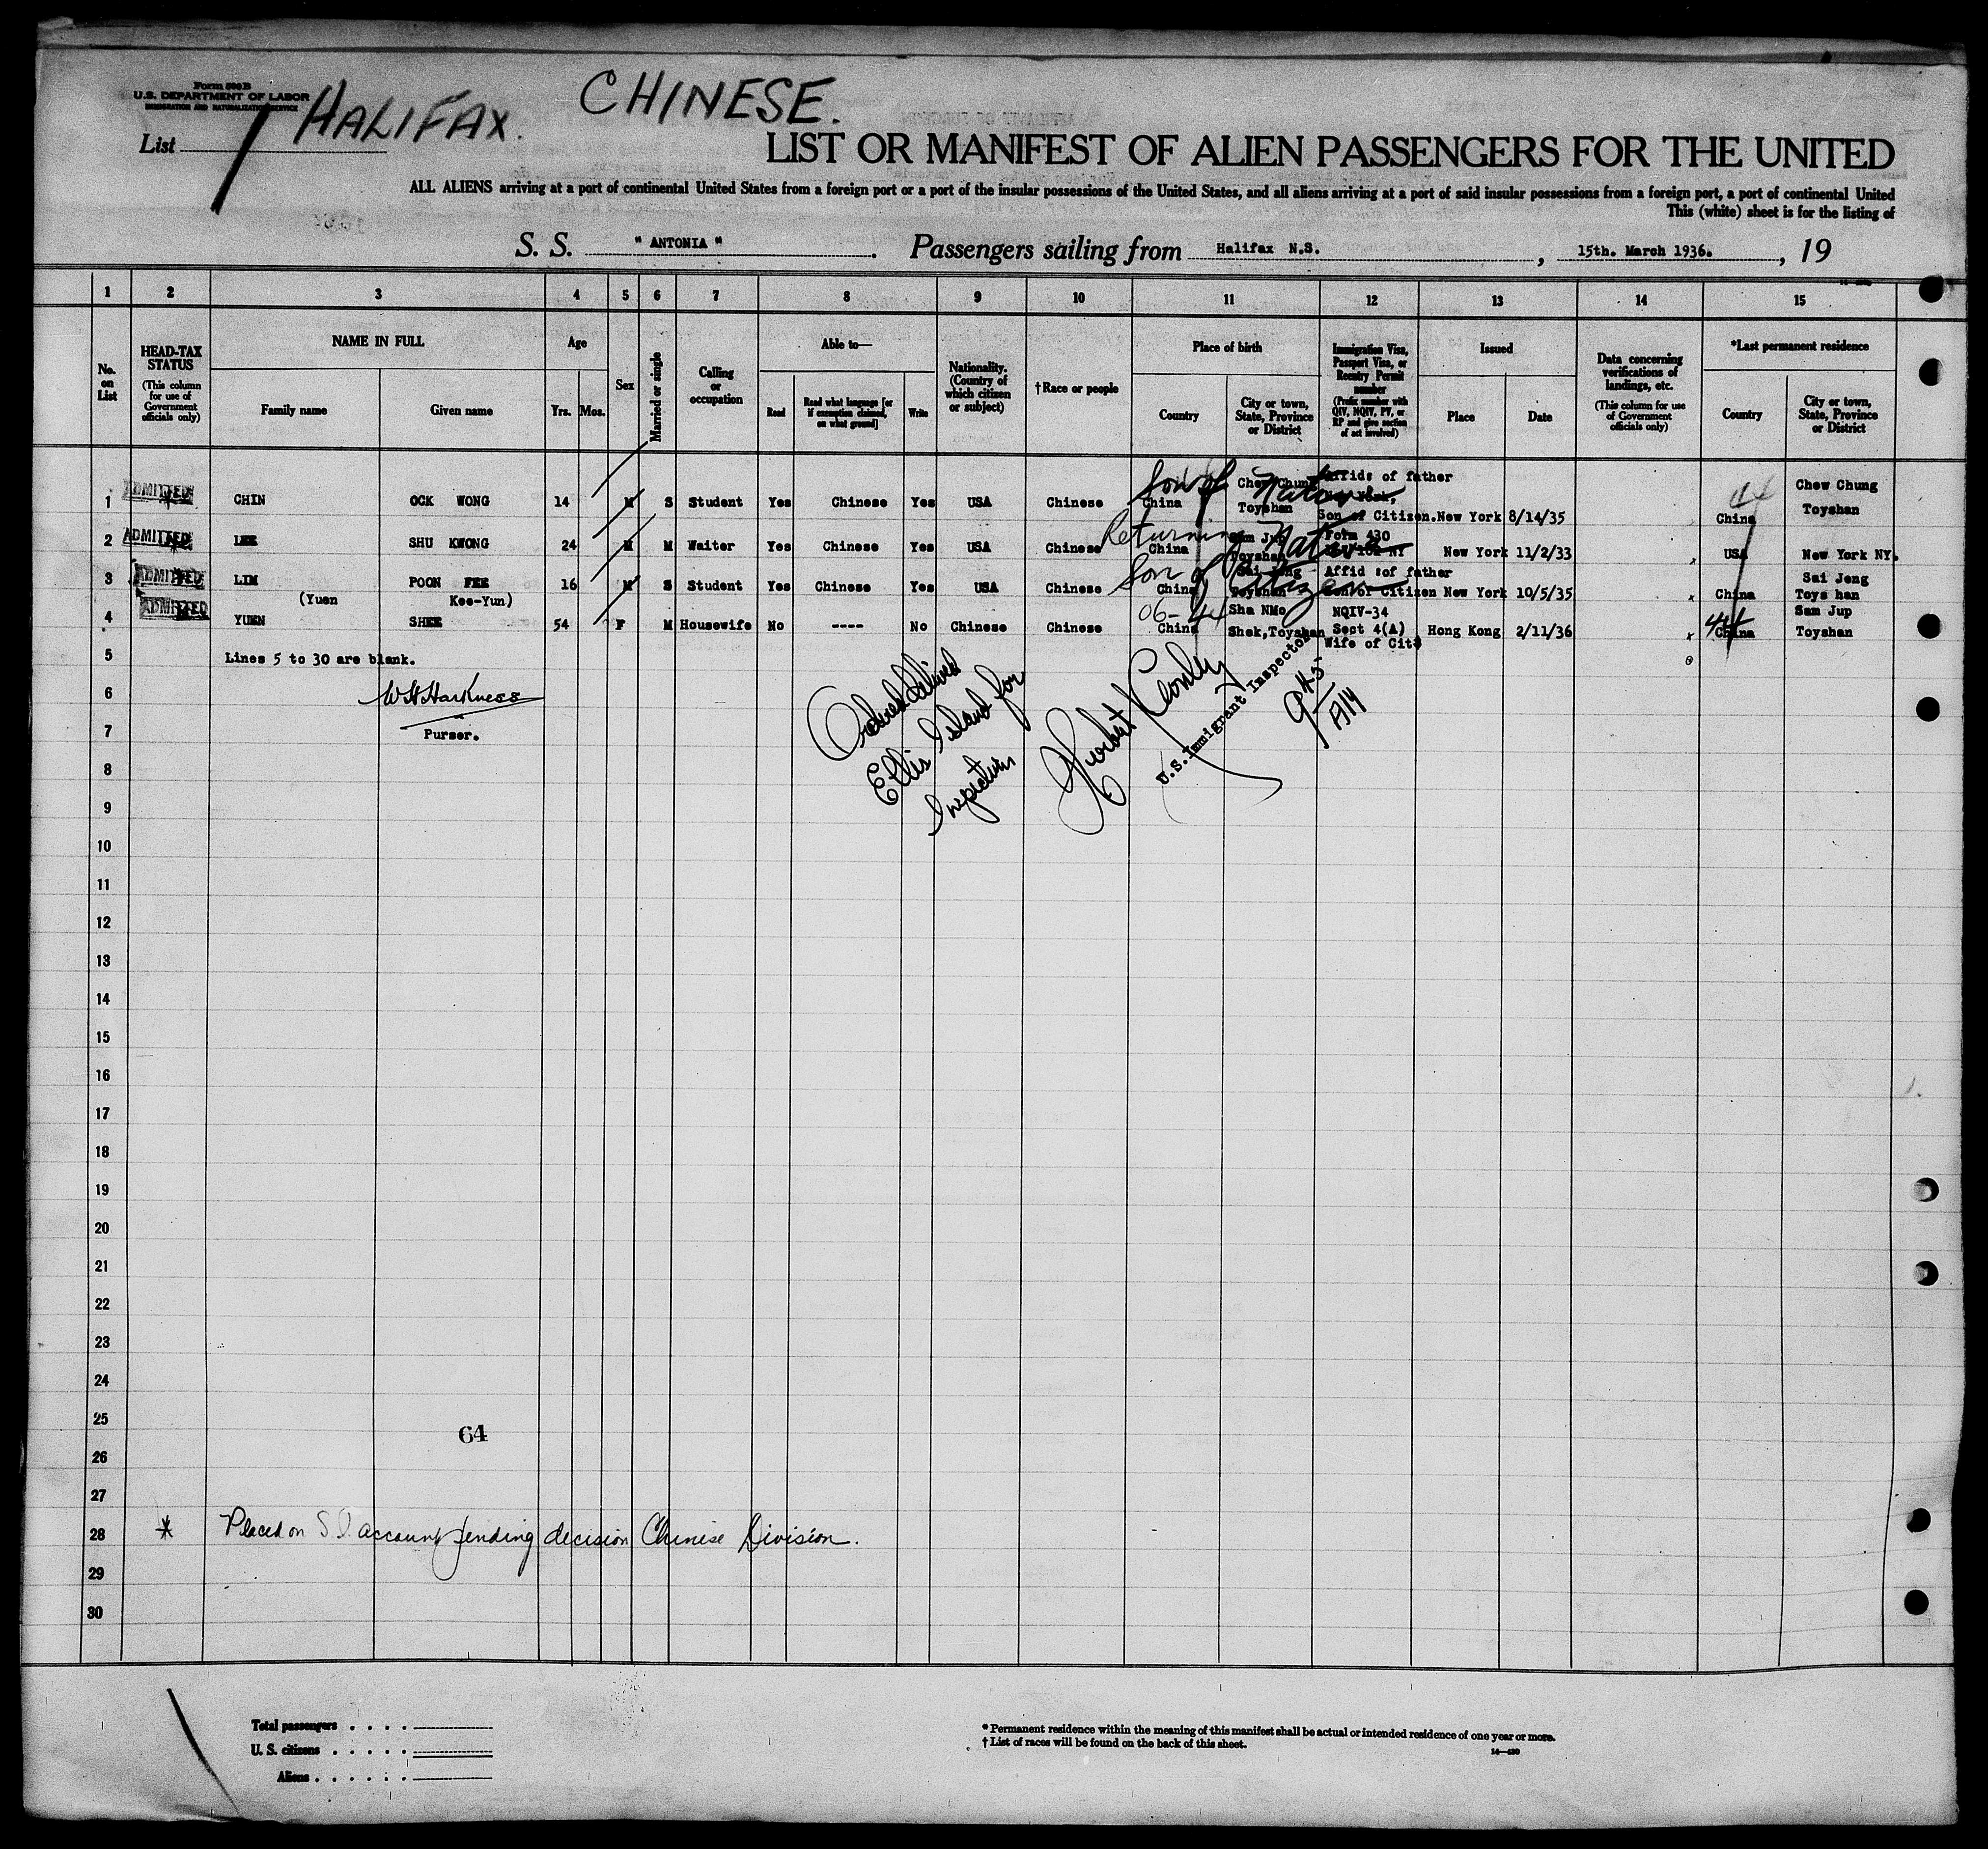 Form 500 B
U.S. DEPARTMENT OF LABOR
IMMIGRATION AND NATURALIZATION SERVICE
List 1
HALIFAX. CHINESE.
LIST OR MANIFEST OF ALIEN PASSENGERS FOR THE UNITED
ALL ALIENS arriving at a port of continental United States from a foreign port or a port of the insular possessions of the United States, and all aliens arriving at a port of said insular possessions from a foreign port, a port of continental United
This (white) sheet is for the listing of
S. S. " ANTONIA " . Passengers sailing from Halifax N.S. , 15th. March 1936. , 19
1 2 3 4 5 6 7 8 9 10 11 12 13 14 15
No. on List
HEAD-TAX STATUS (This column for use of Government officials only)
NAME IN FULL Family name Given name
Age Yrs. Mos.
Sex
Married or single
Calling or occupation
Able to— Read Read what language [or if exemption claimed, on what ground] Write
Nationality. (Country of which citizen or subject)
†Race or people
Place of birth Country City or town, State, Province or District
Immigration Visa, Passport Visa, or Reentry Permit number (Prefix number with QIV, NQIV, PV, or RP and give section of act involved)
Issued Place Date
Data concerning verifications of landings, etc. (This column for use of Government officials only)
*Last permanent residence Country City or town, State, Province or District
1 ADMITTED CHIN OCK WONG 14 M S Student Yes Chinese Yes USA Chinese China Chew Chung Toyshan Affids of father Son of Citizen, New York 8/14/35 China Chew Chung Toyshan
Son of Native
2 ADMITTED LEE SHU KWONG 24 M M Waiter Yes Chinese Yes USA Chinese China Sam Jup Toyshan Form 430 NY New York 11/2/33 x USA New York NY.
Returning Native
3 ADMITTED LIM POON FEE 16 M S Student Yes Chinese Yes USA Chinese China Sai Jeng Toyshan Affid :of father Son of Citizen New York 10/5/35 x China Sai Jeng Toys han
Son of Citizen
(Yuen Kee-Yun)
4 ADMITTED YUEN SHEE 54 F M Housewife No ---- No Chinese Chinese China Sha NMo Shek,Toyshan NQIV-34 Sect 4(A) Wife of Cit Hong Kong 2/11/36 x China Sam Jup Toyshan
06-44
44
44
5 Lines 5 to 30 are blank.
6 W H Harkness
7 Purser.
Ordered Ellis Island for Inspection
Herbert Conley
U.S. Immigrant Inspector
8
9
10
11
12
13
14
15
16
17
18
19
20
21
22
23
24
25
64
26
27
28 * Placed on S I account pending decision Chinese Division.
29
30
Total passengers . . . .
U. S. citizens . . . . .
Aliens . . . . . .
* Permanent residence within the meaning of this manifest shall be actual or intended residence of one year or more.
† List of races will be found on the back of this sheet.
14—430